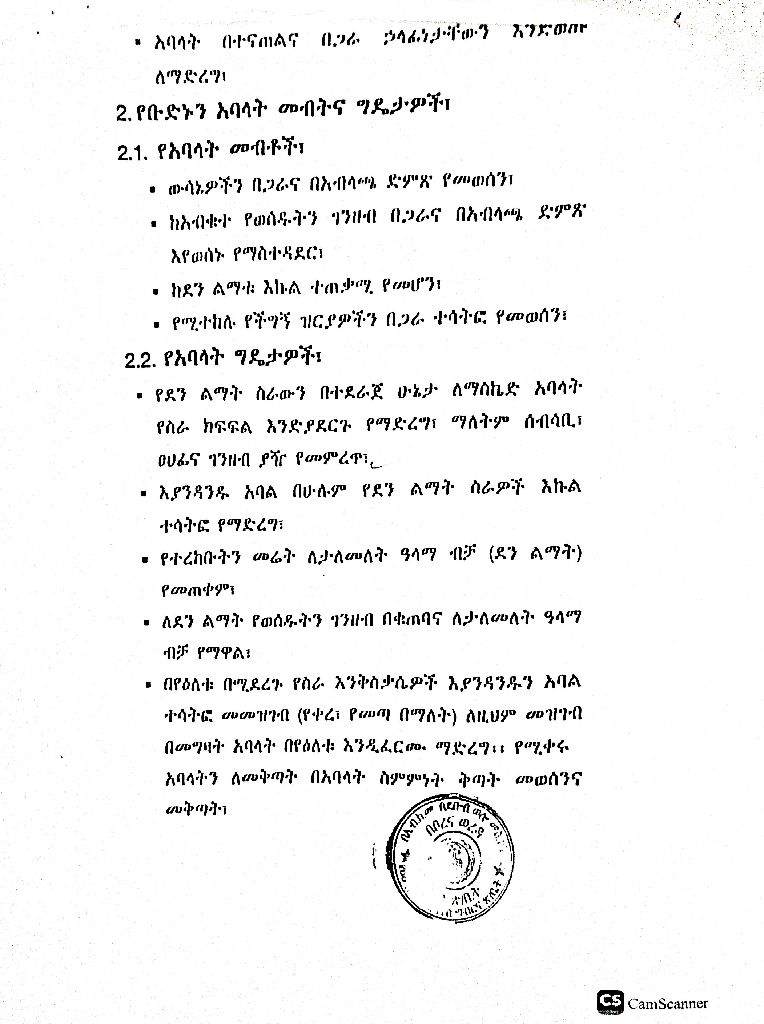 ▪ አባላት በተናጠልና በጋራ ኃላፊነታቸውን እንድወጡ
ለማድረግ፣
2. የቡድኑን አባላት መብትና ግዴታዎች፣
2.1. የአባላት መብቶች፣
▪ ውሳኔዎችን በጋራና በአብላጫ ድምጽ የመወሰን፣
▪ ከአብቁተ የወሰዱትን ገንዘብ በጋራና በአብላጫ ድምጽ
እየወሰኑ የማስተዳደር፣
▪ ከደን ልማቱ እኩል ተጠቃሚ የመሆን፣
▪ የሚተከሉ የችግኝ ዝርያዎችን በጋራ ተሳትፎ የመወሰን፣
2.2. የአባላት ግዴታዎች፣
▪ የደን ልማት ስራውን በተደራጀ ሁኔታ ለማስኬድ አባላት
የስራ ክፍፍል እንድያደርጉ የማድረግ፣ ማለትም ሰብሳቢ፣
ፀሀፊና ገንዘብ ያዥ የመምረጥ፣
▪ እያንዳንዱ አባል በሁሉም የደን ልማት ስራዎች እኩል
ተሳትፎ የማድረግ፣
▪ የተረከቡትን መሬት ለታለመለት ዓላማ ብቻ (ደን ልማት)
የመጠቀም፣
▪ ለደን ልማት የወሰዱትን ገንዘብ በቁጠባና ለታለመለት ዓላማ
ብቻ የማዋል፣
▪ በየዕለቱ በሚደረጉ የስራ እንቅስታሴዎች እያንዳንዱን አባል
ተሳትፎ መመዝገብ (የቀረ፣ የመጣ በማለት) ለዚህም መዝገብ
በመግዛት አባላት በየዕለቱ እንዲፈርሙ ማድረግ፡፡ የሚቀሩ
አባላትን ለመቅጣት በአባላት ስምምነት ቅጣት መወሰንና
መቅጣት፣
በቦረና ወረዳ
CS CamScanner